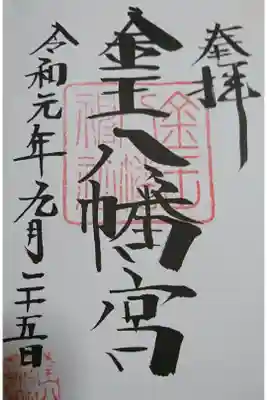 奉拝
金王八幡宮
令和元年九月二十五日